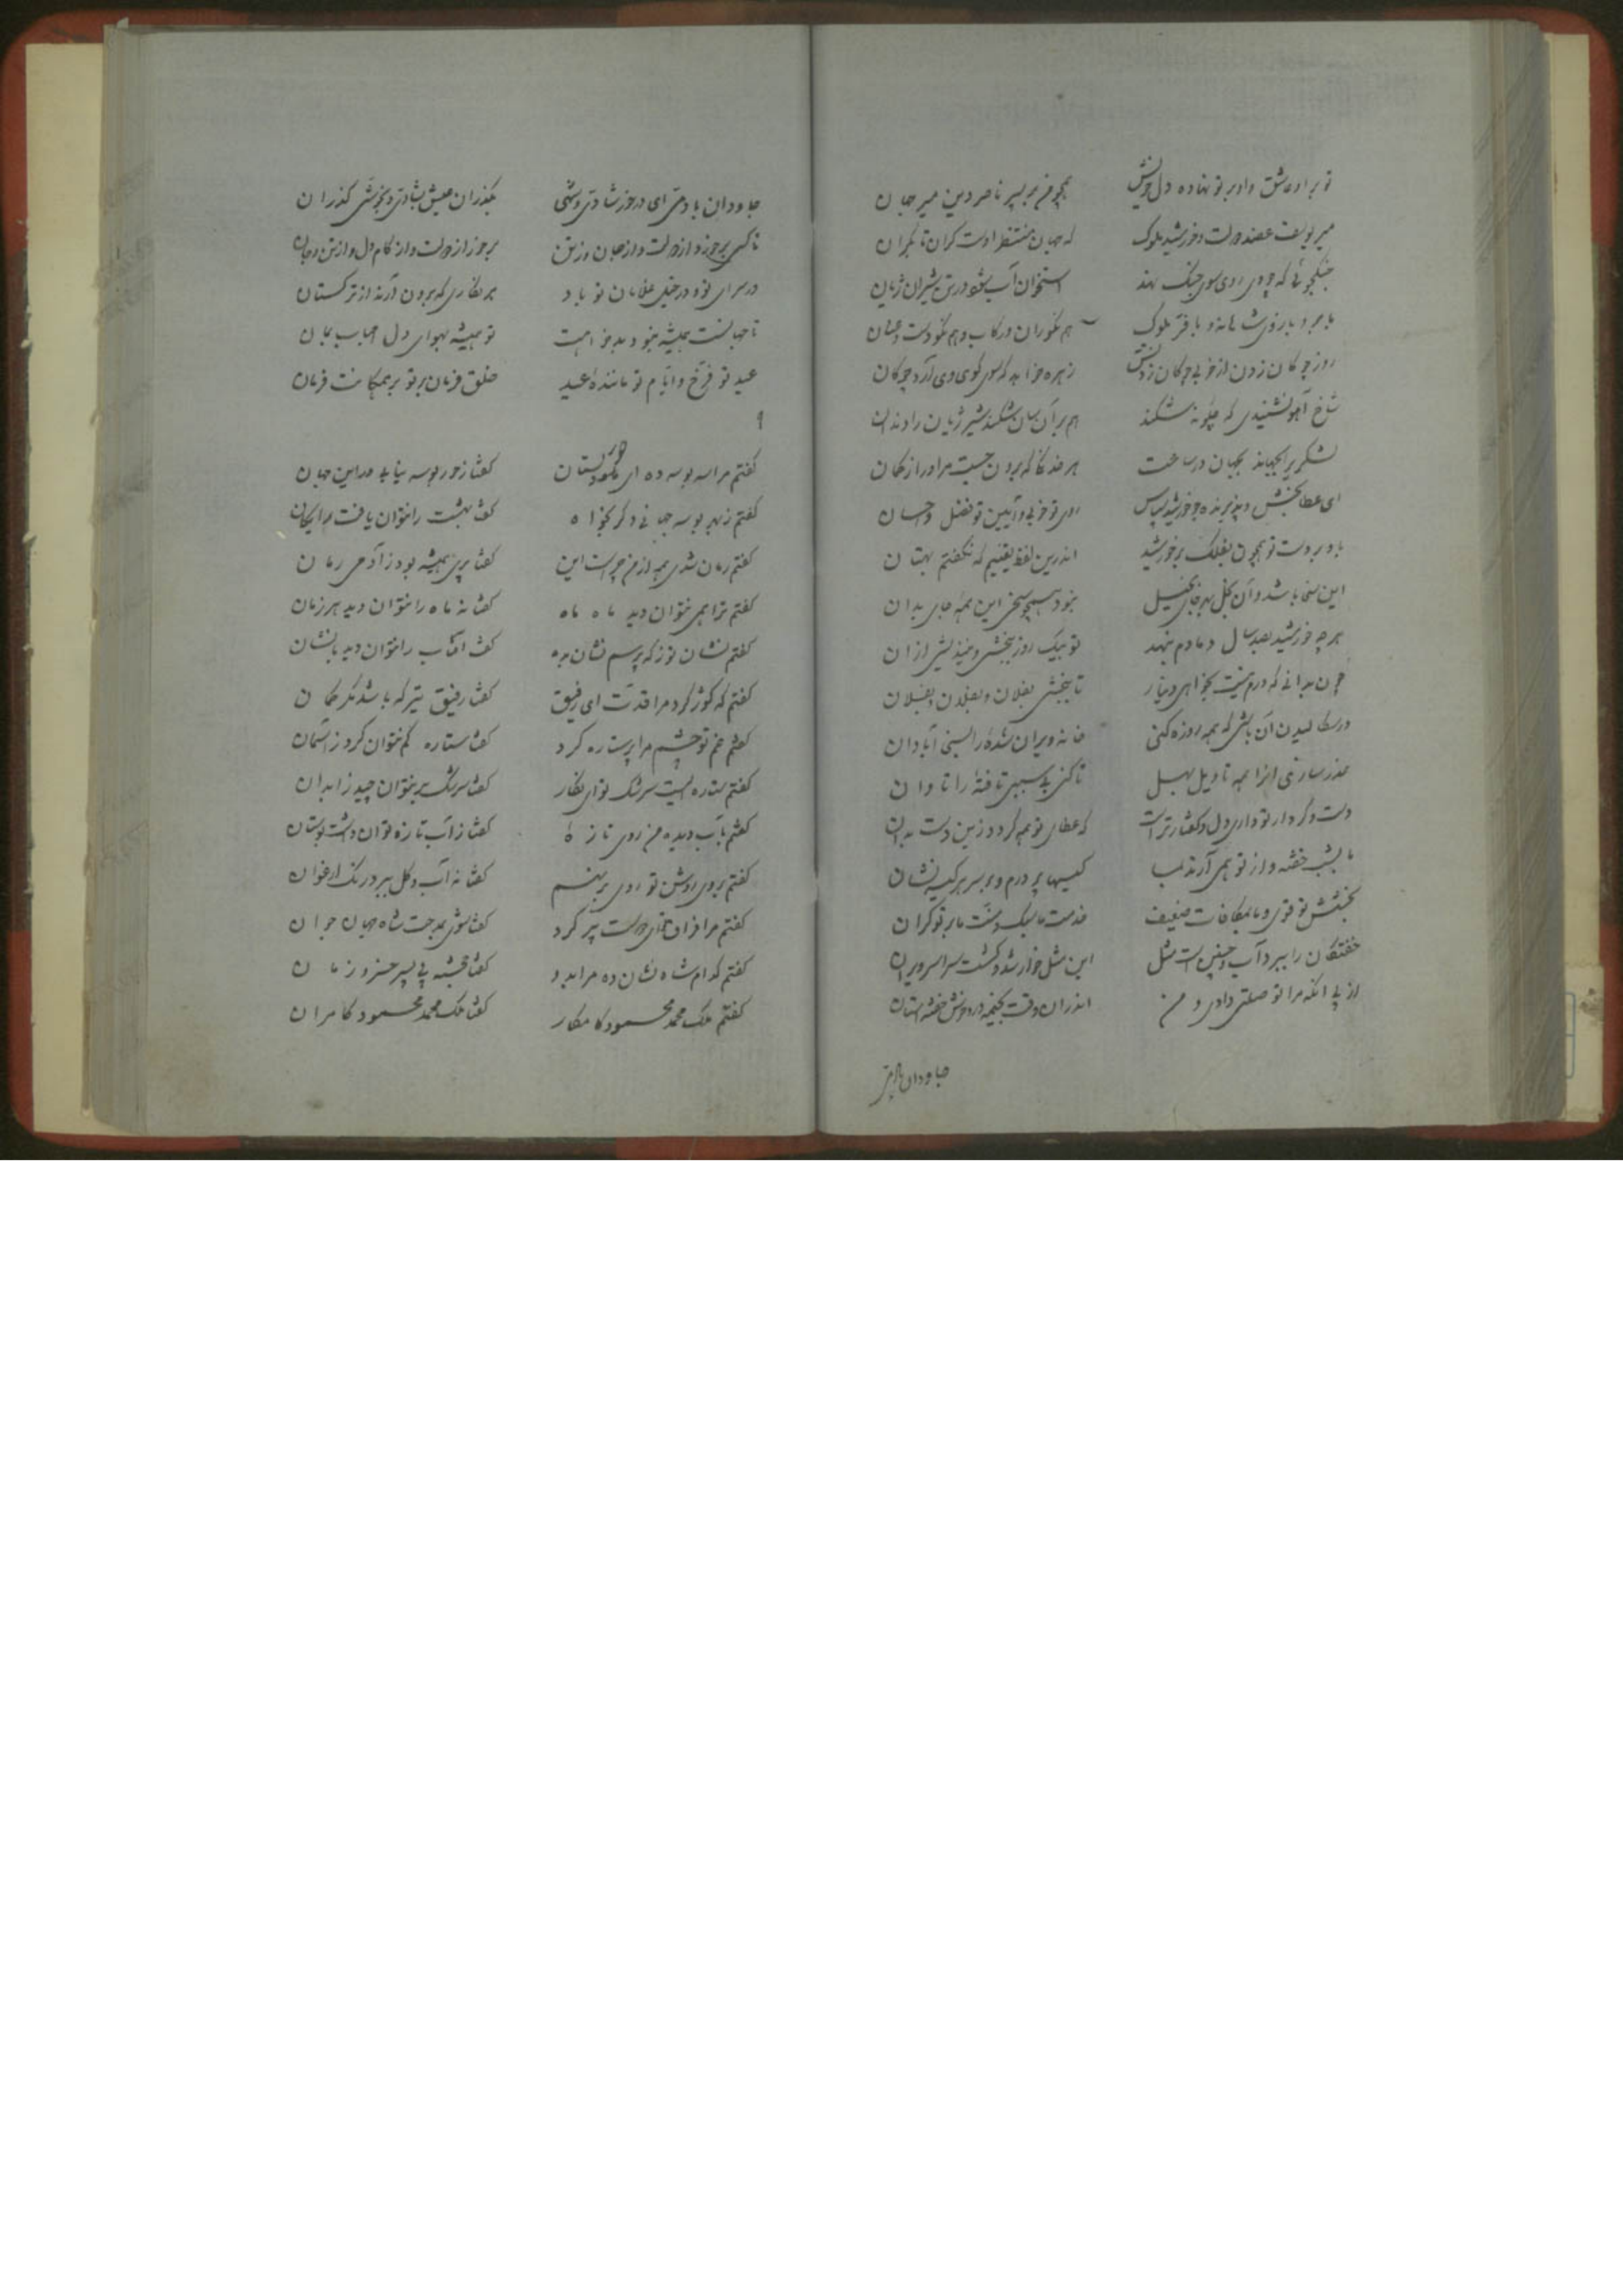 تو بر او عاشق و او بر تو نهاده دل خویش همچو من بر پسر ناصر دین میر جهان
میر یوسف عضد دولت و خورشید ملوک که جهان منتظر اوست کران تا بکران
جنگجوئی که چو وی روی سوی جنگ نهد استخوان آب شود در تن شیران ژیان
هم نکوران و رکاب و هم نکو دست و عنان
روز چوگان زدن از خوبی چوگان زدنش زهره خواهد که سوی گوی وی آرد چوگان
شاخ آهو نشنیدی که چگونه شکند هم بر آن سان شکند شیر ژیان را دندان
لشکری را بجهاند بجهان در ساعت هر خدنگی که برون جست مر او را ز کمان
ای عطا بخش و پذیرنده چو خورشید سپاس روی تو خوبی و آیین تو فضل و احسان
باد بر دست تو همچون بفلک بر خورشید اندرین لفظ یقینم که نگفتم بهتان
این سخی باشد و آن بخل بهر جای بخیل نبود هیچ سخی این همه جای بدان
هر چه خورشید بصد سال دمادم بنهد تو بیک روز ببخشی و نیندیشی از آن
چون بدانی که درم نیست بخواهی دینار تا ببخشی بفلان و بفلان و بفلان
در سگالیدن آن باشی که همه روزه کنی خانهٔ ویران شدهٔ را بسخی آبادان
تا کنی بی سببی تافتهٔ را تاوان
دست و کردار تو داری دل و گفتار تراست که عطای تو همی گردد زین دست بدان
ما بشب خفته و از تو همی آرند بما کیسها پر درم و بر سر هر کیسه نشان
بخشش تو قوی و ما بمکافات ضعیف خدمت ما سبک و منت ما بر تو گران
خفتگان را ببرد آب و چنین است مثل این مثل خوار شد و گشت سراسر ویران
از پی آنکه مرا تو صلتی دادی و من اندر آن وقت بخیمه در و خوش خفته ستان
جاودان بادی
جاودان بادی ای در خور شادی و شهی بگذران عیش بشادی و بخوشی گذران
تا کسی برخورد از دولت و از جان و ز تن برخور از دولت و از کام دل و از تن و جان
در سرای تو و در خیل غلامان تو باد هر نگاری که برون آرند از ترکستان
تا جهانست همیشه بنو و بد بنو است تو همیشه بهوای دل احباب بمان
عید تو فرخ و ایام تو مانندهٔ عید خلق فرمان بر تو بر همگانت فرمان
گفتم مرا سه بوسه ده ای حور دلستان گفتا ز حور بوسه نیابی در این جهان
گفتم ز بهر بوسه جهانی دگر مخواه گفتا بهشت را نتوان یافت رایگان
گفتم نهان شوی همه از من چراست این گفتا پری همیشه بود ز آدمی رمان
گفتم ترا همی نتوان دید ماه ماه گفتا نه ماه را نتوان دید هر زمان
گفتم نشان تو ز که پرسم نشان بده گفت آفتاب را نتوان دید با نشان
گفتم که کوژ کرد مرا قدت ای رفیق گفتا رفیق تیر که باشد مگر کمان
گفتم غم تو چشم مرا پر ستاره کرد گفتا ستاره کم نتوان کرد ز آسمان
گفتم ستاره نیست سرشک تو ای نگار گفتا سرشک بر نتوان چید ز ابدان
گفتم بآب دیده من روی تازه گفتا ز آب تازه توان داشت بوستان
گفتم بروی روشن تو روی بر نهم گفتا نه آب و گل ببرد رنگ ارغوان
گفتم مرا فراق تو ای دوست پیر کرد گفتا شوی بمدحت شاه جهان جوان
گفتم کدام شاه نشان ده مرا بدو گفتا خجسته پی پسر خسرو زمان
گفتم ملک محمد محمود کامکار گفتا ملک محمد محمود کامران